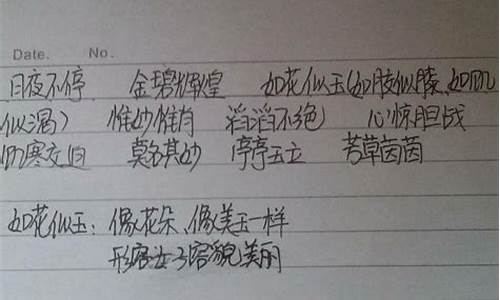 Date. No.
日夜不停 金碧辉煌 如花似玉(如胶似膝、如饥
似渴) 惟妙惟肖 滔滔不绝 心惊胆战
饥寒交迫 莫名其妙 亭亭玉立 芳草茵茵
如花似玉:像花朵、像美玉一样
形容女子容貌美丽